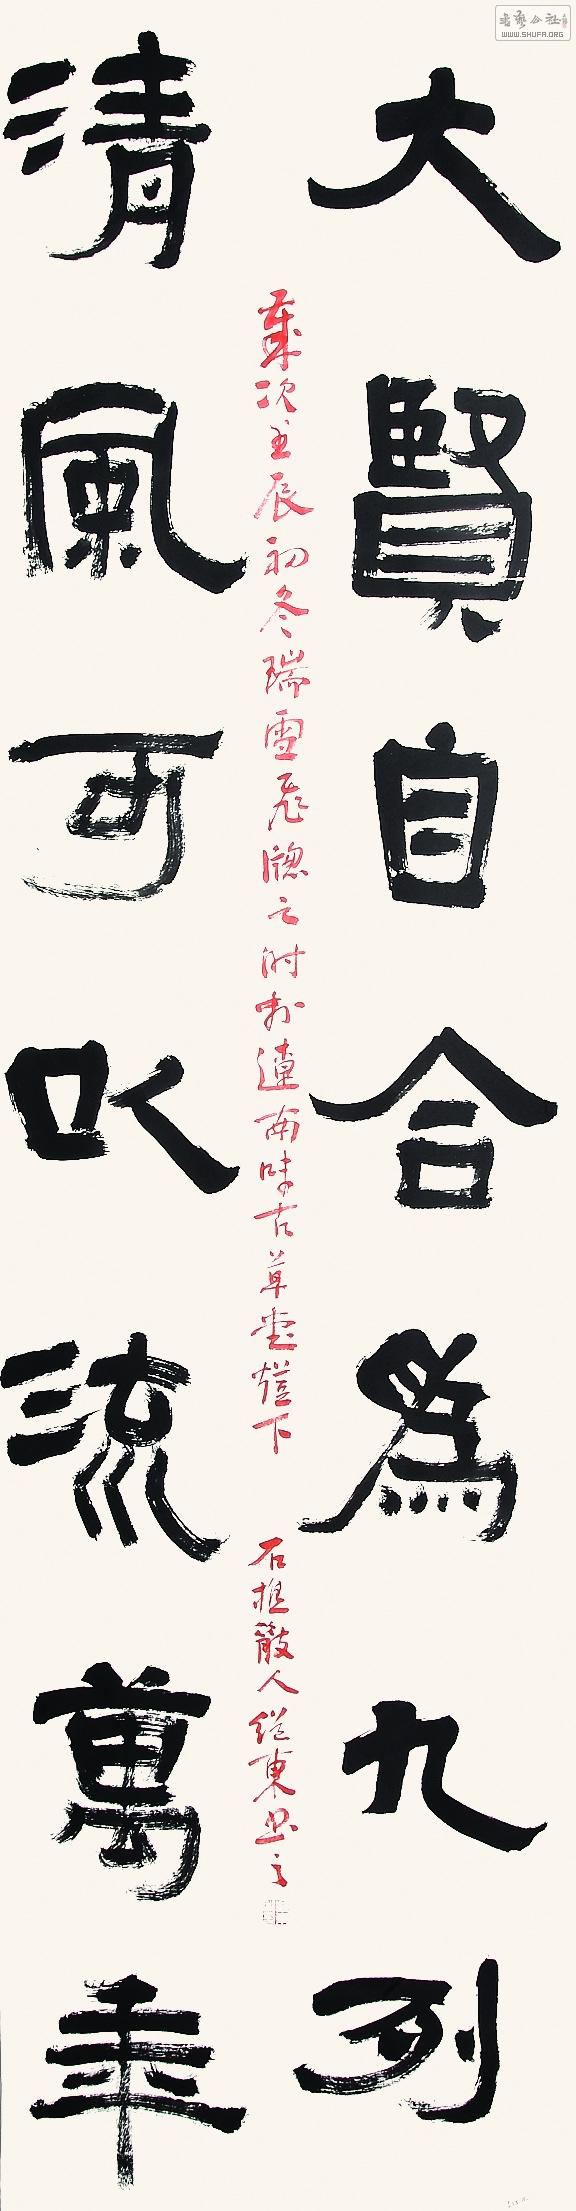 大賢自合為九列
清風可以流萬年
歲次壬辰初冬瑞雪飛牕之時於連南味古草堂燈下
石樵散人從東書之
書藝公社
WWW.SHUFA.ORG